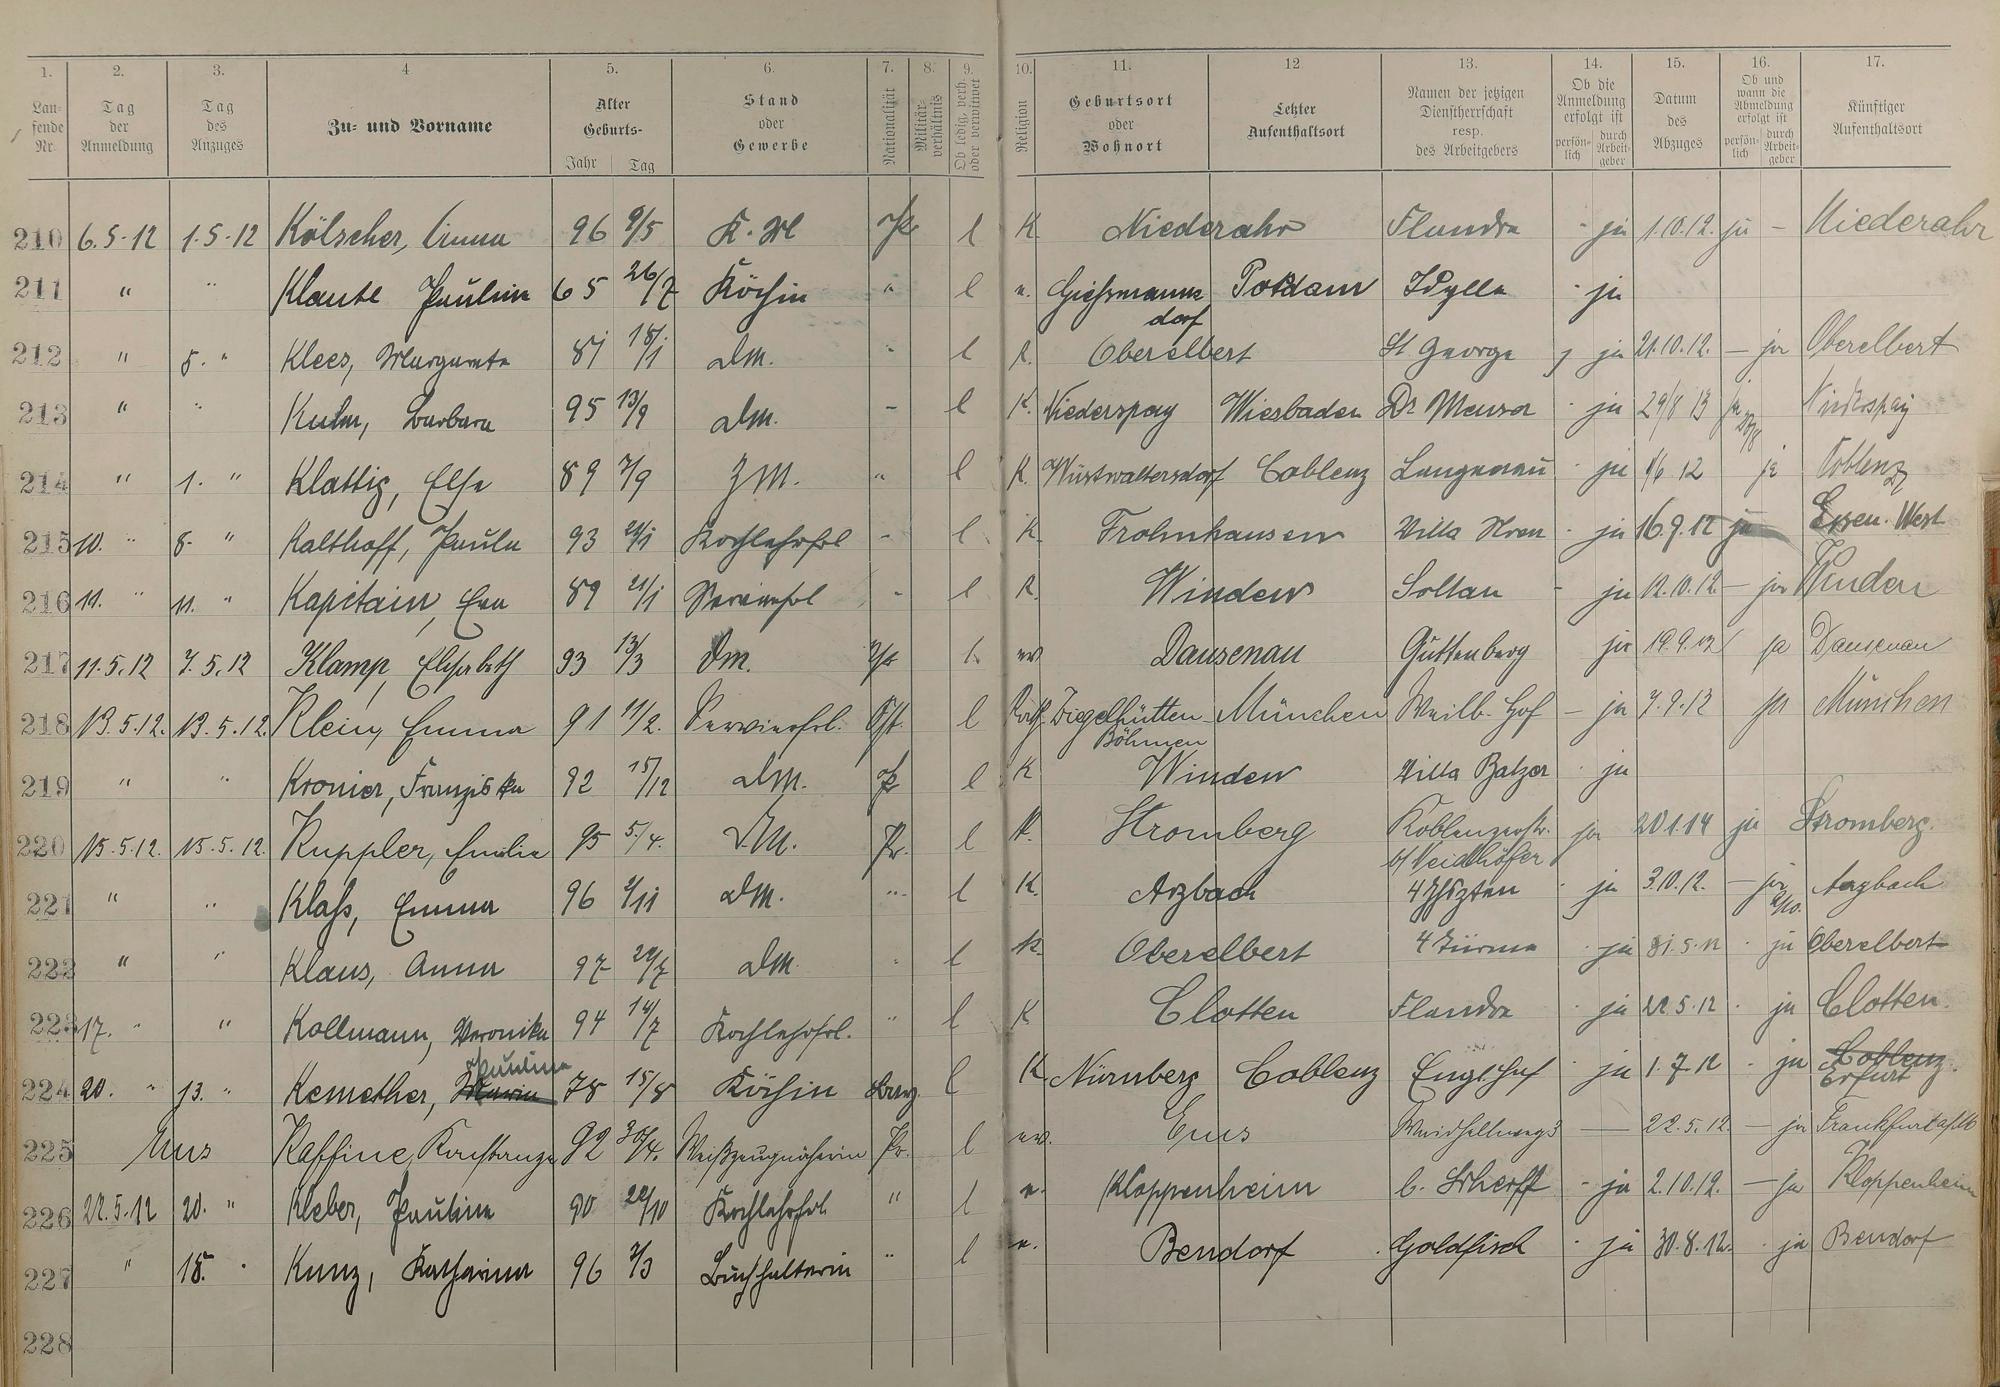 1. 2. 3. 4 5. 6. 7. 8. 9. 10. 11. 12 13. 14. 15. 16. 17.
Lau-fende Nr. Tag der Anmeldung Tag des Anzuges Zu- und Vorname Alter Geburts- Jahr Tag Stand oder Gewerbe Nationalität Militär-verhältnis Ob ledig, verh. oder verwitwet Religion Geburtsort oder Wohnort Letzter Aufenthaltsort Namen der jetzigen Dienstherrschaft resp. des Arbeitgebers Ob die Anmeldung erfolgt ist persön-lich durch Arbeit-geber Datum des Abzuges Ob und wann die Abmeldung erfolgt ist persön-lich durch Arbeit-geber Künftiger Aufenthaltsort
210 6.5.12 1.5.12 Kölscher, Anna 96 9/5 Pr l K. Niederahr Flandra - ja 1.10.12. ja - Niederahr
211 " " Klaute Pauline 65 26/7 Köchin " l Giehsmanns dorf Potsdam Idylle - ja
212 " 8. " Klees, Margareta 18/1 dM. " l K. Oberelbert St George ja 21.10.12. - ja Oberelbert
213 " " Kuhn, Barbara 95 13/9 dM. - l K. Niederspay Wiesbaden Dr Meuser - ja 29/8 13 ja Niederspay
214 " 1. " Klattig, Else 89 7/9 ZM. " l K. Wüstwaltersdorf Coblenz Langenau - ja 1/6 12 ja Coblenz
215 10. " 8. " Kalthoff, Paula 93 Kochlehrfrl - l K. Frohnhausen Villa - ja 16.9.12 ja Essen-West
216 11. " 11. " Kapitain, Eva 89 21/1 Servierfrl - l K. Winden Soltau - ja 12.10.12 - ja Winden
217 11.5.12 7.5.12 Klamp, Elisabeth 93 13/3 dM. Pr l. ev Dausenau Guttenberg ja 19.9.12 ja Dausenau
218 13.5.12. 13.5.12. Klein, Emma 91 11/2. Servierfrl. Öst. l Kath. Ziegelhütten Böhmen München Weilb. Hof - ja 7.9.12 ja München
219 " " Kronier, Franziska 92 15/12 dM. Pr l K Winden Villa Balzer - ja
220 15.5.12. 15.5.12. Kuppler, Emilie 95 5/4. D.M. Pr. l K. Stromberg Koblenzerstr. b/ Neidhöfer ja 20 1.14 ja Stromberg.
221 " " Klaß, Emma 96 2/11 dM. " l K. Arzbach 4 Jhszten - ja 3.10.12. - ja 2/10. Arzbach
222 " " Klaus, Anna 97 29/7 dM. " l K. Oberelbert 4 Türme - ja 31.5.12 - ja Oberelbert
223 17. " " Kollmann, Veronika 94 14/7 Kochlehrfrl. " l K Clotten Flandra - ja 22.5.12 - ja Clotten.
224 20. " 13. " Kemether, Marie Pauline 78 15/8 Köchin Bay. l K. Nürnberg Coblenz Englhof - ja 1.7.12 - ja Coblenz. Erfurt
225 Aus Kaffine, Konstanze 92 30/4. Weißzeugnäherin Pr. l ev. Ems Weidhellweg 3 — 22.5.12. - ja Frankfurt a/M
226 22.5.12 20. " Kleber, Pauline 90 20/10 Kochlehrfrl. " l e. Kloppenheim b. Scherff - ja 2.10.12. - ja Kloppenheim
227 " 18. " Kunz, Katharina 96 7/3 Buchhalterin " l e. Bendorf Goldfisch - ja 30.8.12. - ja Bendorf
228